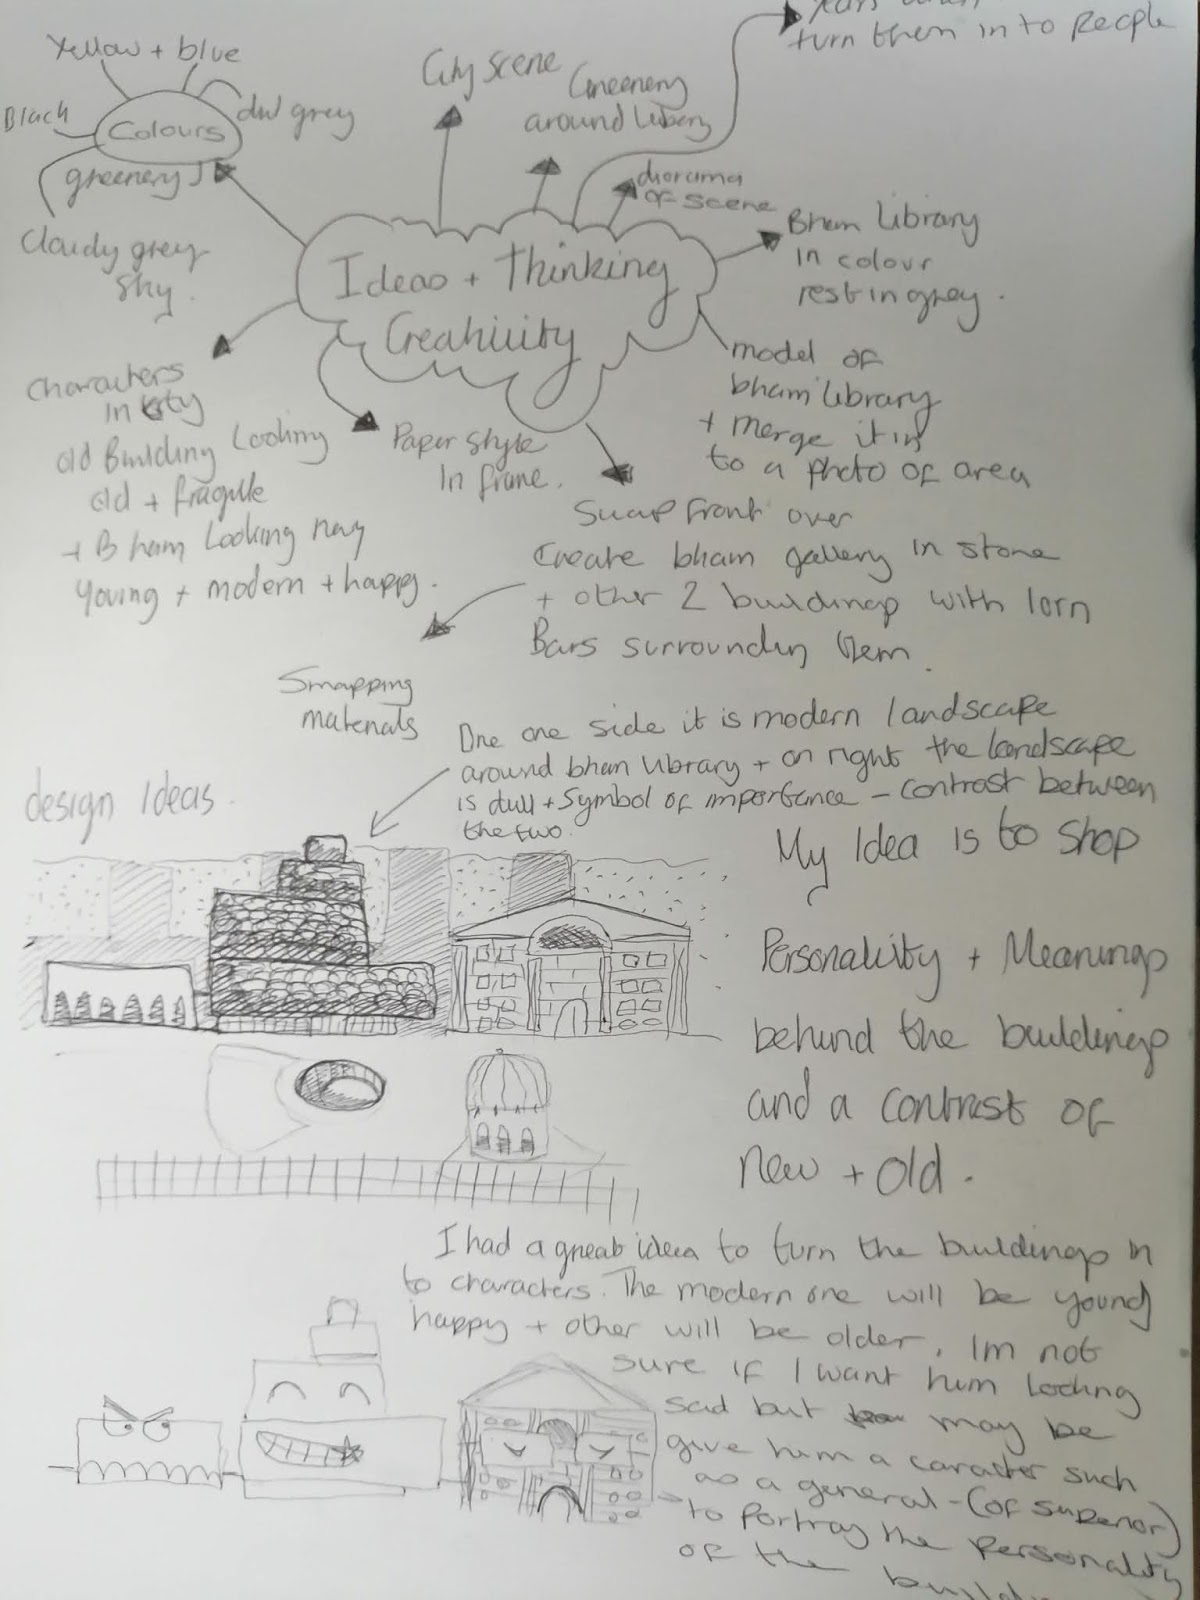 turn them in to people
Yellow + blue
Black
Colours
dul grey
greenery
Cloudy grey
sky.
City scene
Greenery
around library
diorama
of scene
Ideas + Thinking
Creativity
Bham Library
in colour
rest in grey.
model of
bham library
+ merge it in
to a photo of area
Characters
in city
old Building Looking
old + fragile
+ Bham Looking new
young + modern + happy.
Paper style
In frame.
Swap front over
Create bham gallery in stone
+ other 2 buildings with Iorn
Bars surrounding them.
Swapping
materials
One one side it is modern landscape
around bham library + on right the landscape
is dull + symbol of importance - contrast between
the two.
design Ideas.
My Idea is to show
Personality + Meanings
behind the buildings
and a contrast of
new + old.
I had a great idea to turn the buildings in
to characters. The modern one will be young
happy + other will be older. Im not
sure if I want him looking
sad but may be
give him a caracter such
as a general - (of superior)
to portray the personality
of the